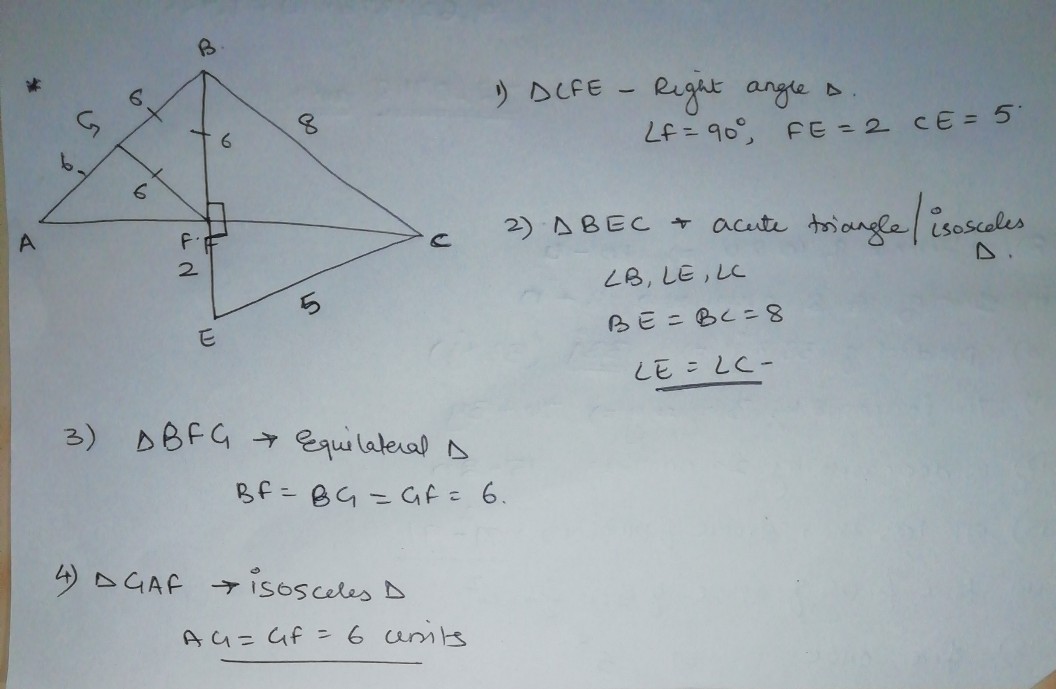 *
B
6
G
6
8
6
6
A
F.F
C
2
5
E
1) ΔCFE - Right angle Δ.
∠F = 90°, FE = 2 CE = 5
2) ΔBEC → acute triangle / isosceles Δ.
∠B, ∠E, ∠C
BE = BC = 8
∠E = ∠C -
3) ΔBFG → Equilateral Δ
BF = BG = GF = 6.
4) ΔGAF → isosceles Δ
AG = GF = 6 units